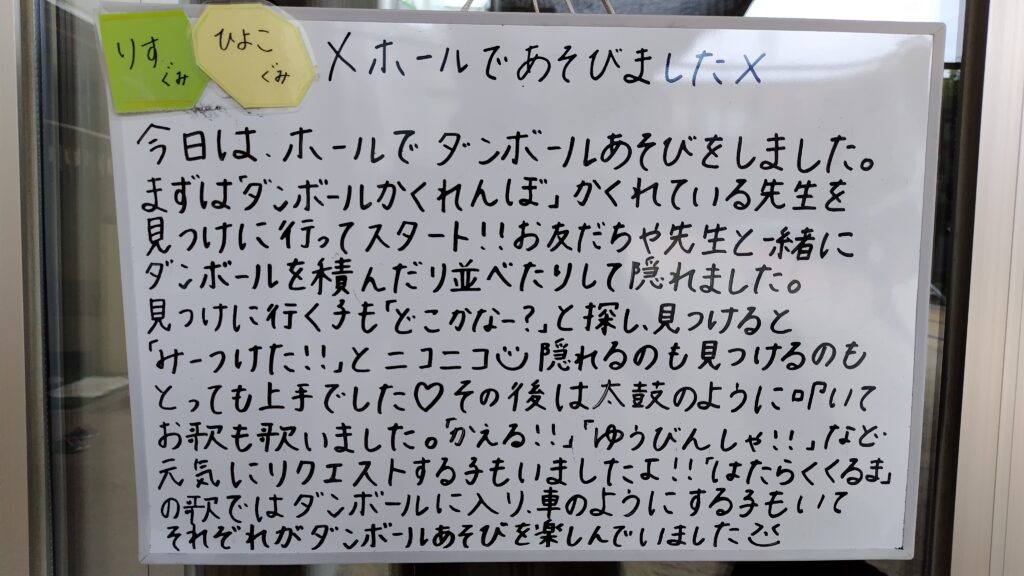 りすぐみ
ひよこぐみ
×ホールであそびました×
今日は、ホールでダンボールあそびをしました。
まずは「ダンボールかくれんぼ」かくれている先生を
見つけに行ってスタート!!お友だちや先生と一緒に
ダンボールを積んだり並べたりして隠れました。
見つけに行く子も「どこかなー?」と探し、見つけると
「みーつけた!!」とニコニコ☺隠れるのも見つけるのも
とっても上手でした♡その後は太鼓のように叩いて
お歌も歌いました。「かえる!!」「ゆうびんしゃ!!」など
元気にリクエストする子もいましたよ!!「はたらくくるま」
の歌ではダンボールに入り、車のようにする子もいて
それぞれがダンボールあそびを楽しんでいました☺